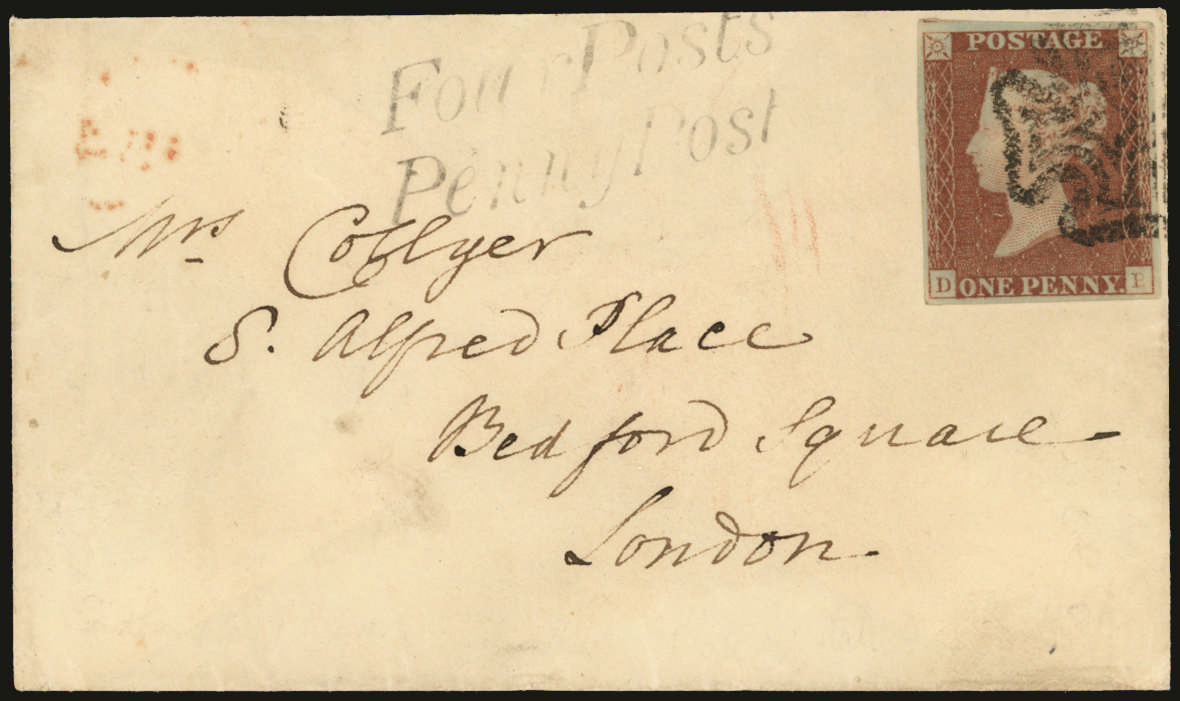 Four Posts
Penny Post
POSTAGE
D ONE PENNY. E
Mrs Collyer
8. Alfred Place
Bedford Square
London